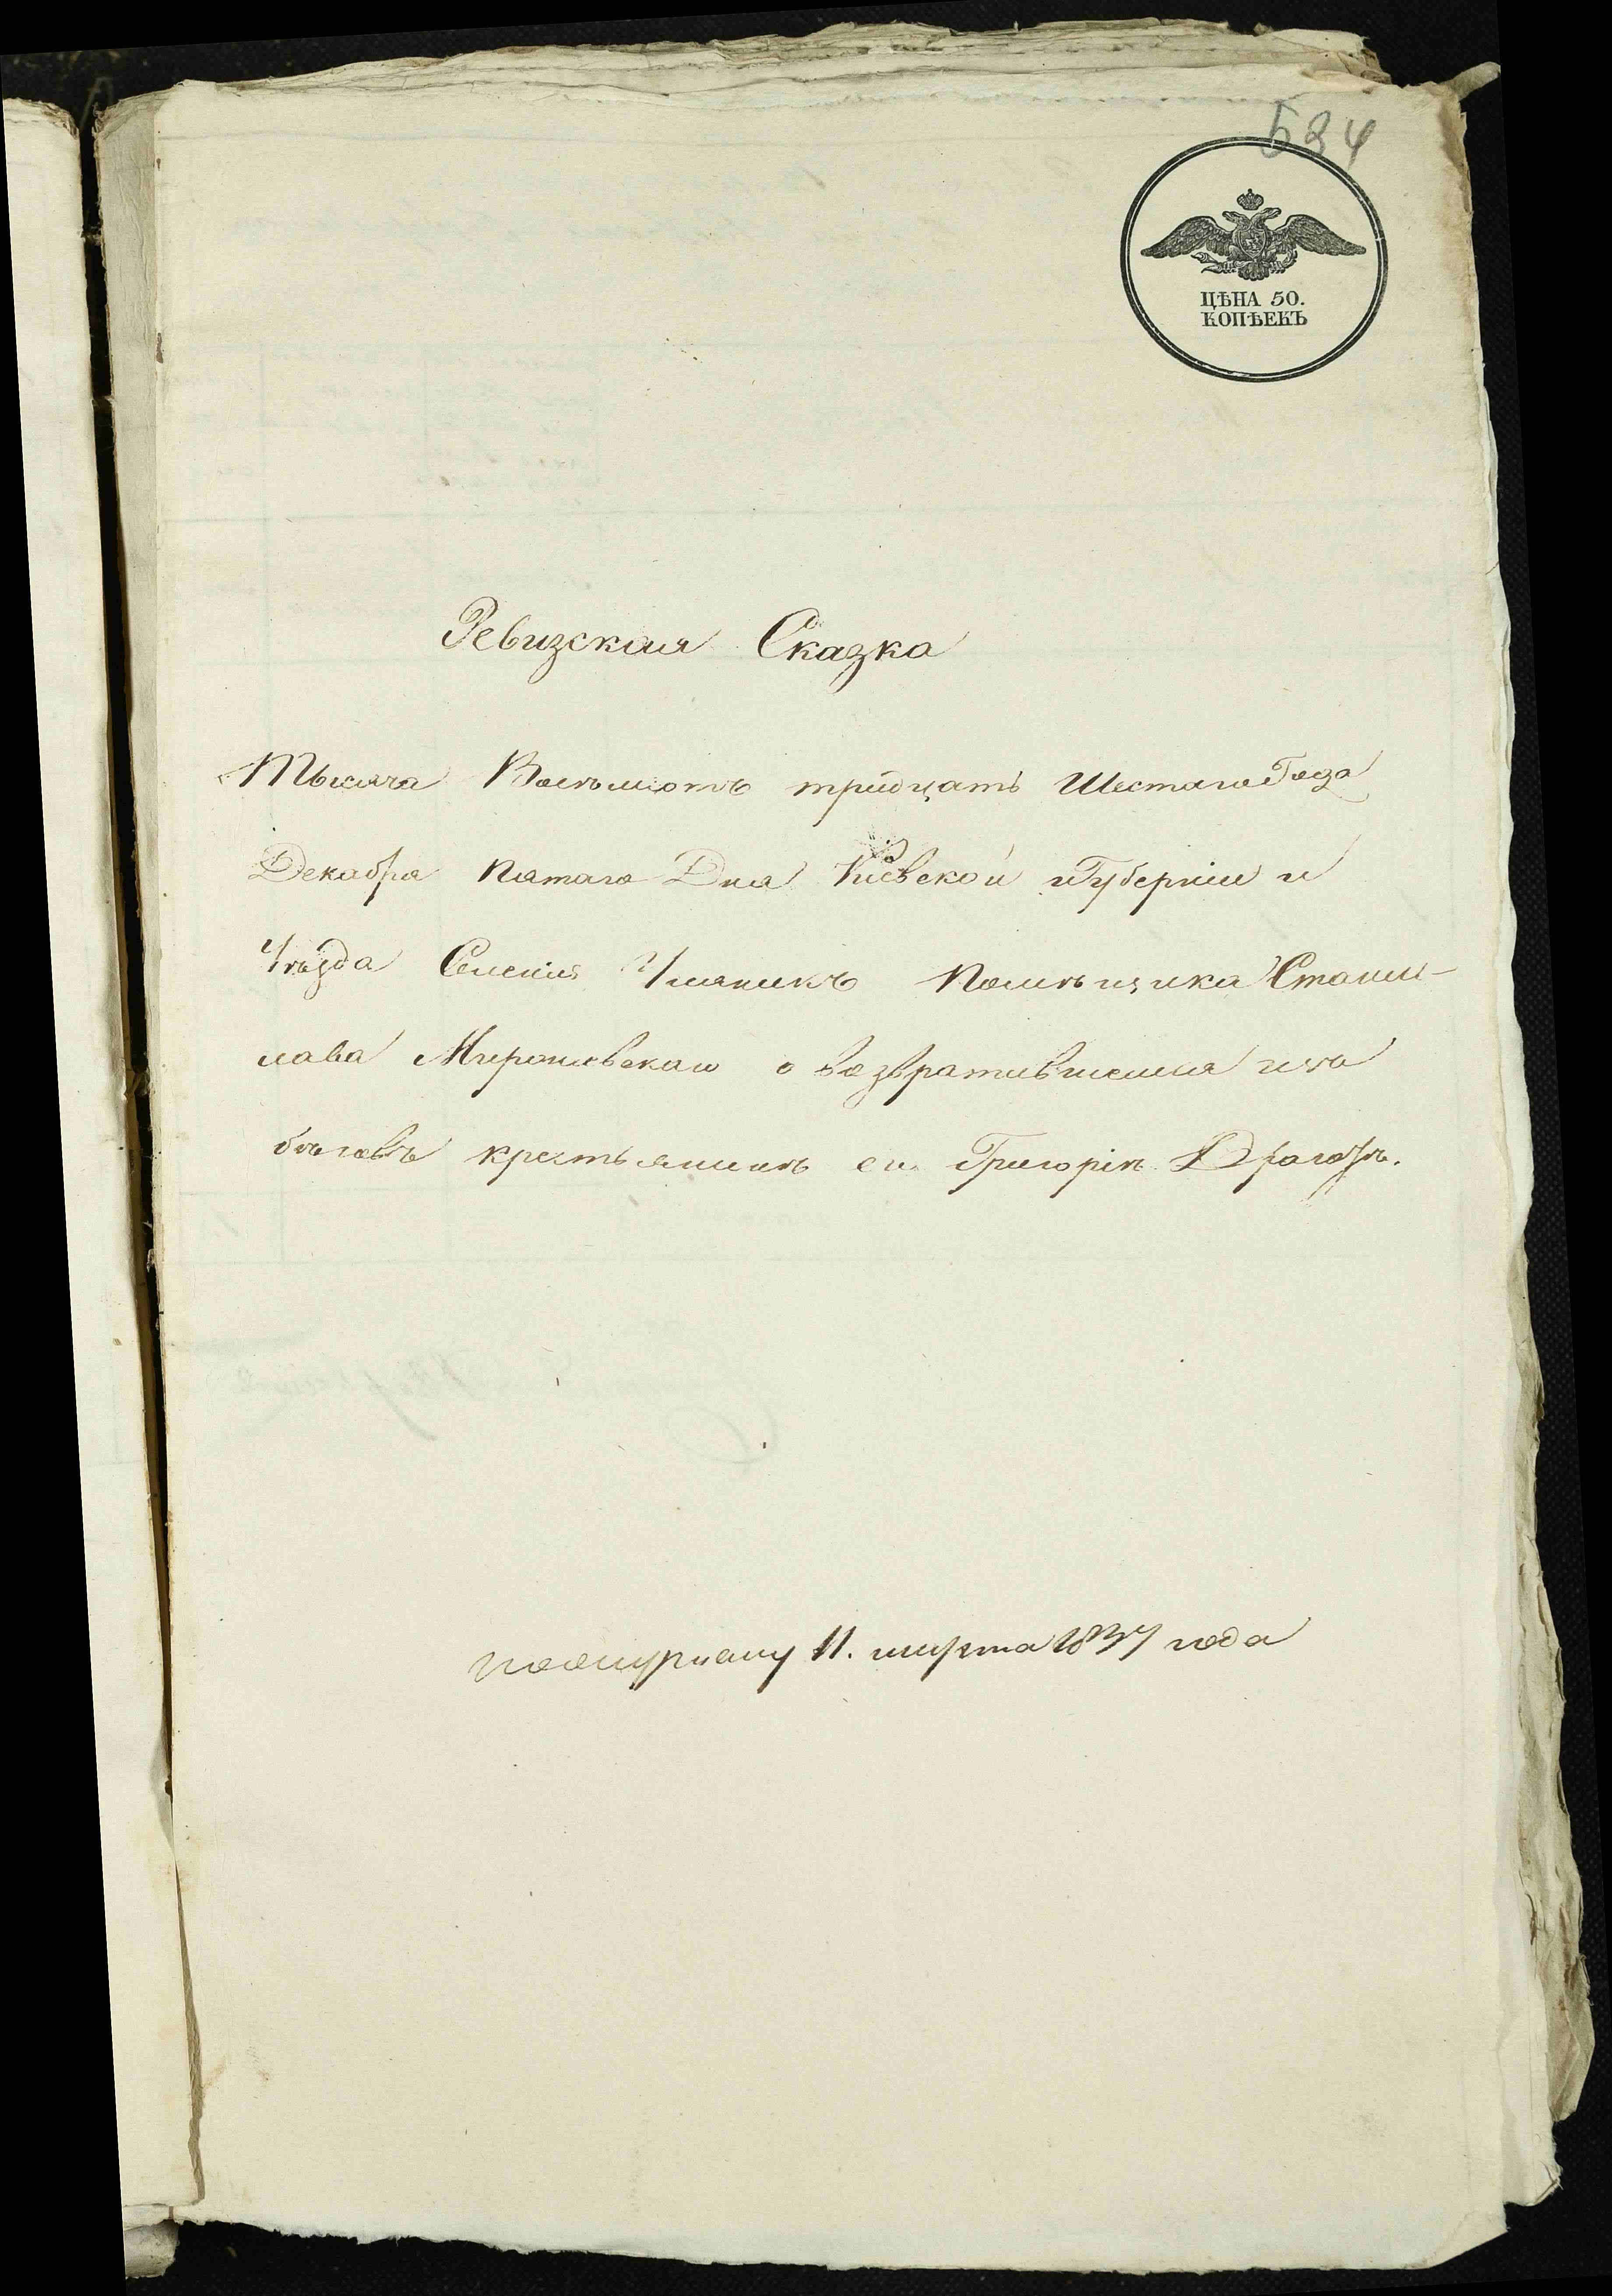 534
ЦѢНА 50.
КОПѢЕКЪ
Ревизская Сказка
Тысяча Восемьсотъ тридцать Шестаго Года
Декабря Пятаго Дня Кіевской Губерніи и
Уѣзда Селенія Уляникъ Помѣщика Станис-
лава Мироневскаго о возвратившемся изъ
бѣговъ крестьянинѣ его Григоріѣ
11. марта 1837 года